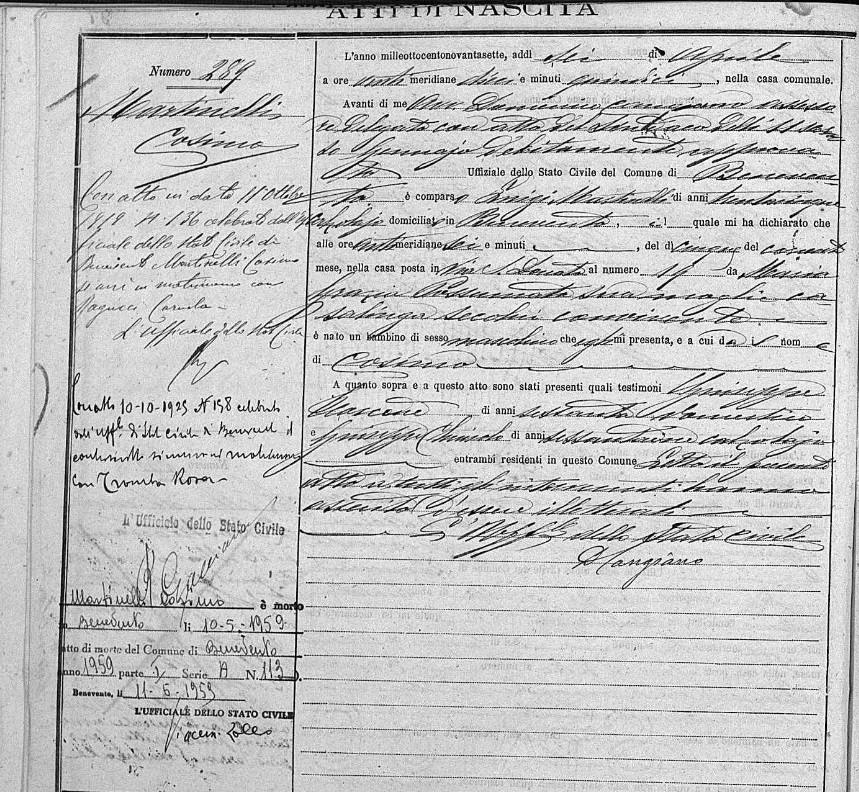 ATTI DI NASCITA
Numero 289
Martinelli
Cosimo
Con atto in data 11 Ottobre
1919 N. 136 celebrato dall'Uf
ficiale dello Stato Civile di
Benevento Martinelli Cosimo
si unì in matrimonio con
Carmela
L'Ufficiale dello Stato Civile
Con atto 10-10-1923 N° 158 celebrato
dall'Uff. di Stato civile di Benevento il
si univa in matrimonio
con Tromba Rosa
L'Ufficio dello Stato Civile
Martinelli Cosimo è morto
Benevento li 10-5-1959
atto di morte del Comune di Benevento
anno 1959 parte I Serie A N. 113
Benevento, li 11-6-1959
L'UFFICIALE DELLO STATO CIVILE
L'anno milleottocentonovantasette, addì sei di Aprile
a ore anti meridiane dieci e minuti quindici, nella casa comunale.
Avanti di me Avv. Cangiano assesso
re delegato con atto del Sindaco
Gennajo debitamente approva
to Uffiziale dello Stato Civile del Comune di Beneven
to è comparso Luigi Martinelli di anni
domiciliato in Benevento, il quale mi ha dichiarato che
alle ore anti meridiane sei e minuti, del dì cinque del corrente
mese, nella casa posta in Via S. Donato al numero 17 da Maria
grazia Assumata sua moglie ca
salinga secolui convivente
è nato un bambino di sesso maschino che egli mi presenta, e a cui dà i nom e
di Cosimo
A quanto sopra e a questo atto sono stati presenti quali testimoni Giuseppe
di anni sessanta domestico
e Giuseppe di anni calzolajo
entrambi residenti in questo Comune Letto il presente
atto a tutti gli intervenuti hanno
asserito d'essere illetterati
L'Uff.le dello Stato civile
D Cangiano